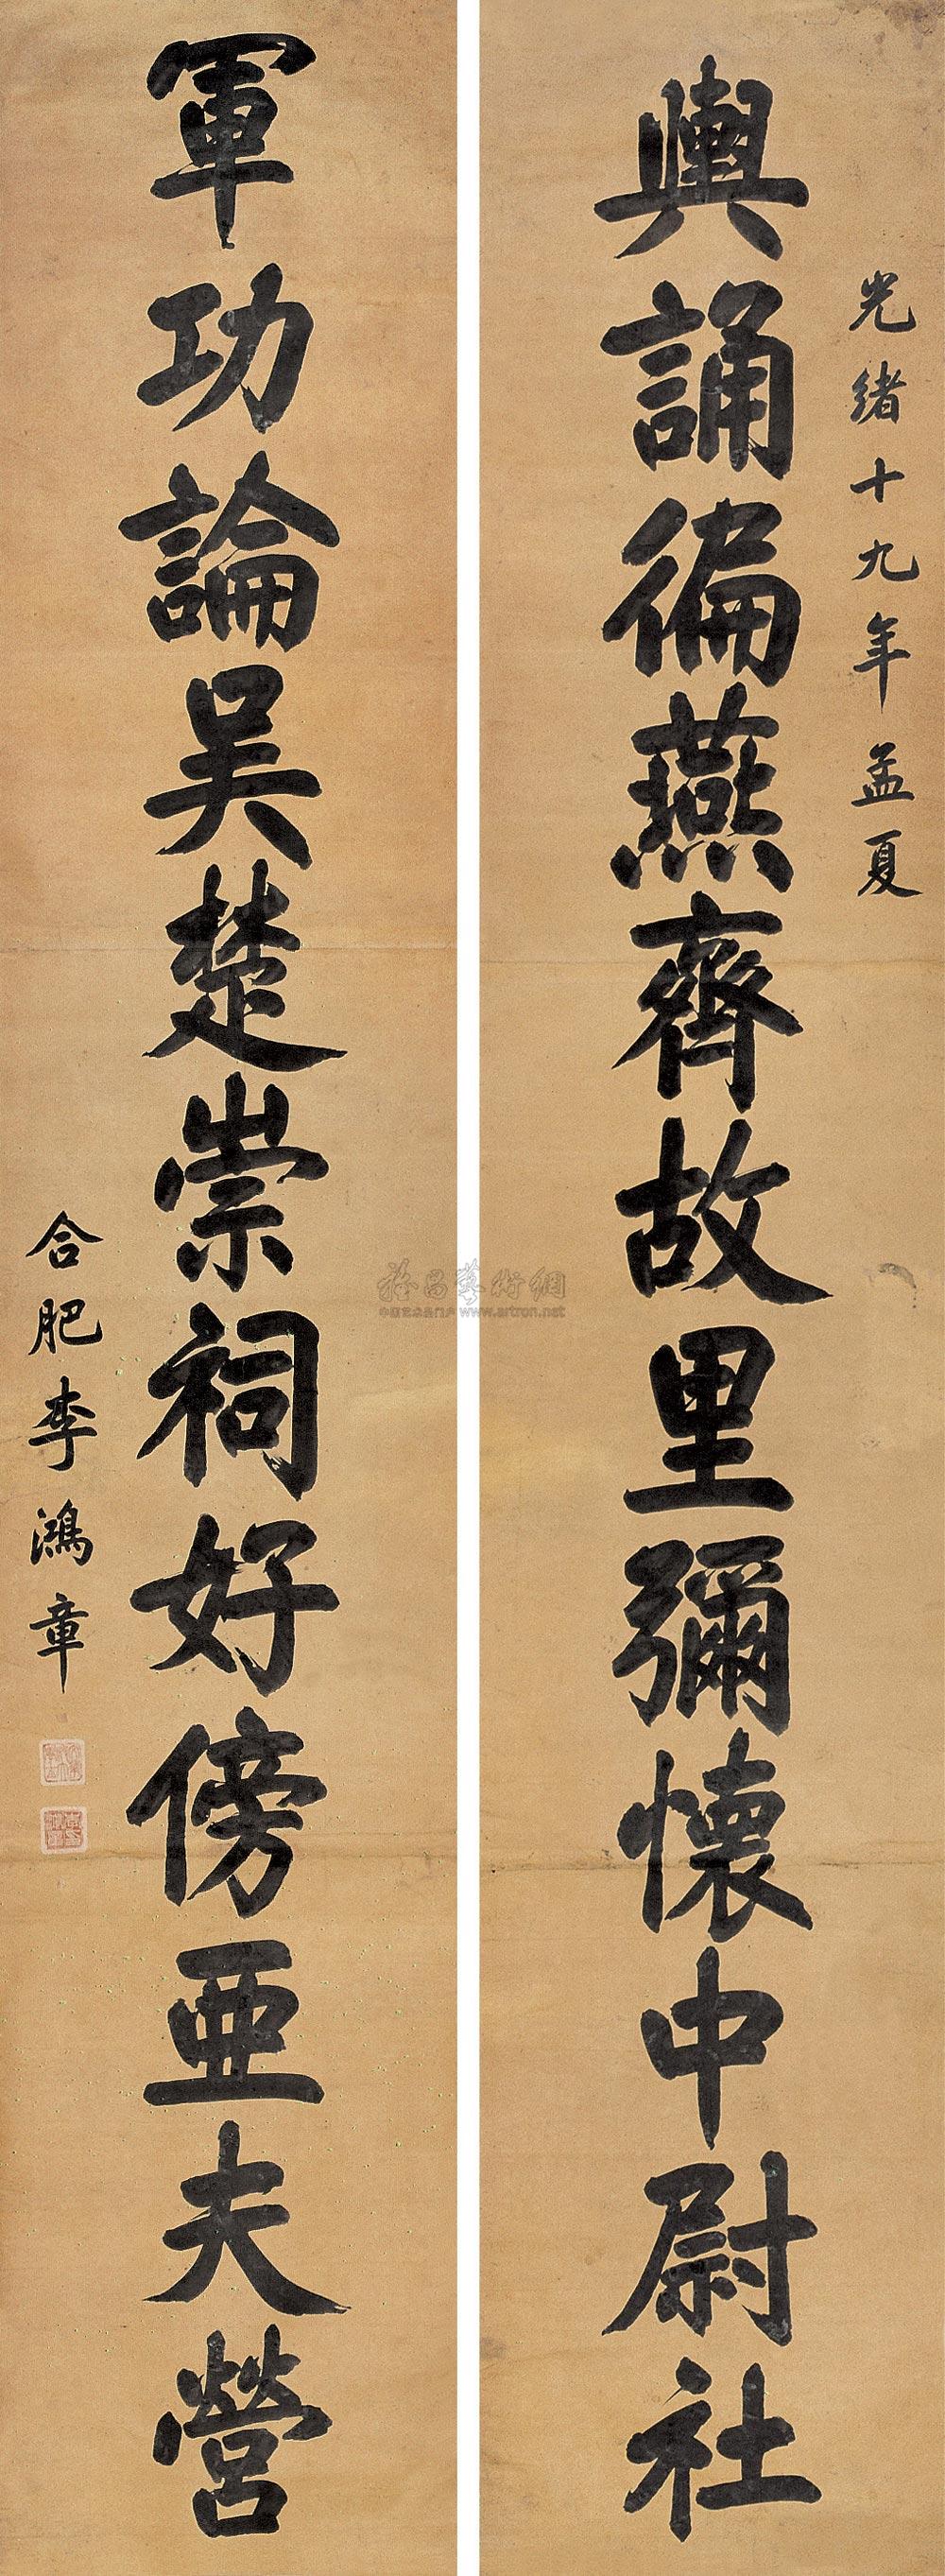 光緒十九年孟夏
輿誦徧燕齊故里彌懷中尉社
軍功論吳楚崇祠好傍亞夫營
合肥李鴻章
雅昌藝術網
www.artron.net